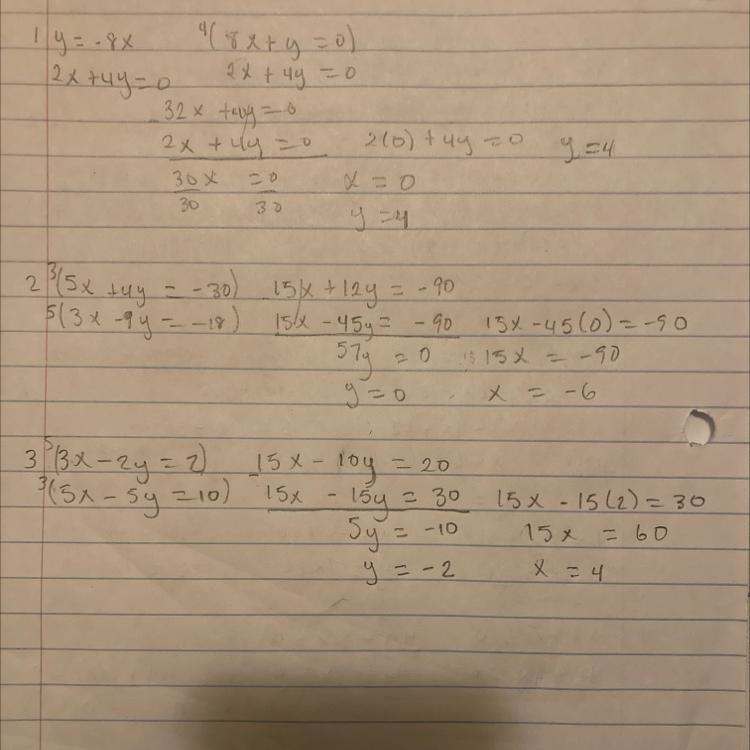 1 y = -8x 4(8x + y = 0)
2x + 4y = 0 2x + 4y = 0
- 32x + 4y = 0
2x + 4y = 0 2(0) + 4y = 0 y = 4
30x = 0 x = 0
30 30 y = 4
2 3(5x + 4y = -30) - 15x + 12y = -90
5(3x - 9y = -18) 15x - 45y = -90 15x - 45(0) = -90
57y = 0 15x = -90
y = 0 x = -6
3 5(3x - 2y = 2) - 15x - 10y = 20
3(5x - 5y = 10) 15x - 15y = 30 15x - 15(2) = 30
5y = -10 15x = 60
y = -2 x = 4